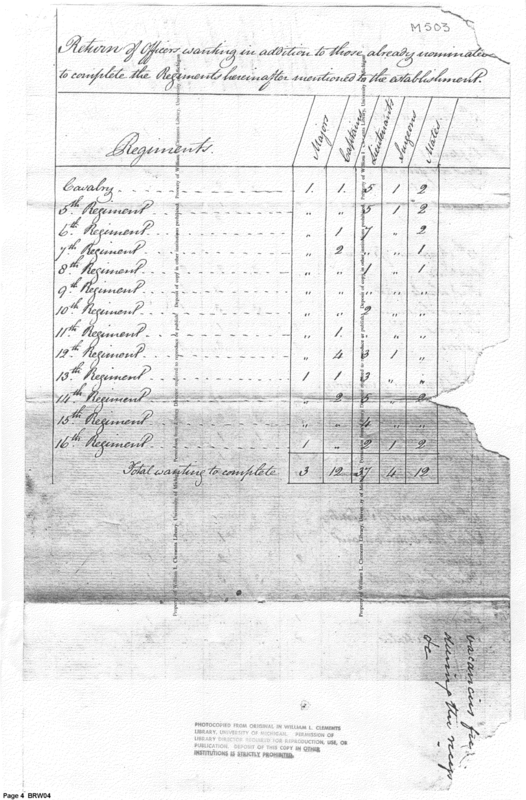 M503
Return of Officers wanting in addition to those already nominated
to complete the Regiments hereinafter mentioned to the establishment.
Regiments Majors Captains Lieutenants Surgeons Mates
Cavalry 1 1 5 1 2
5th Regiment " " 5 1 2
6th Regiment " 1 7 " 2
7th Regiment " 2 " 1
8th Regiment " " 1 " 1
9th Regiment " " " " "
10th Regiment " " 2 " "
11th Regiment " 1 " "
12th Regiment " 4 3 1 "
13th Regiment 1 1 3 " "
14th Regiment " 2 5 " 2
15th Regiment " " 4 " "
16th Regiment 1 " 2 1 2
Total wanting to complete 3 12 37 4 12
Property of William L. Clements Library, University of Michigan
vacancies
during the
&c
PHOTOCOPIED FROM ORIGINAL IN WILLIAM L. CLEMENTS
LIBRARY, UNIVERSITY OF MICHIGAN. PERMISSION OF
LIBRARY DIRECTOR REQUIRED FOR REPRODUCTION, USE, OR
PUBLICATION. DEPOSIT OF THIS COPY IN OTHER
INSTITUTIONS IS STRICTLY PROHIBITED.
Page 4 BRW04